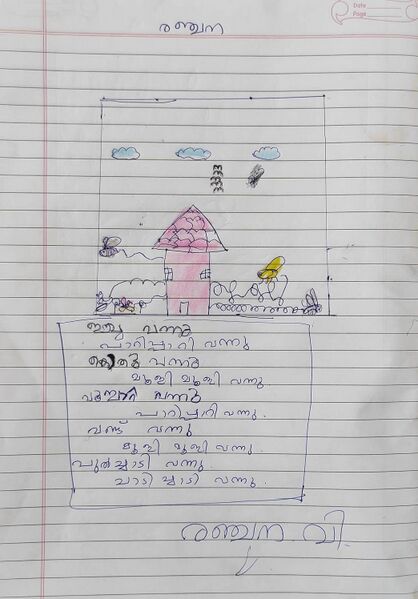 Date
Page
രഞ്ചന
ഈച്ച വന്നു
പാറിപ്പാറി വന്നു
വന്നു
മൂളി മൂളി വന്നു.
വന്നു
പാറിപ്പാറി വന്നു.
വണ്ട് വന്നു
മൂളി മൂളി വന്നു.
പുൽച്ചാടി വന്നു.
ചാടി ചാടി വന്നു.
രഞ്ചന. വി.